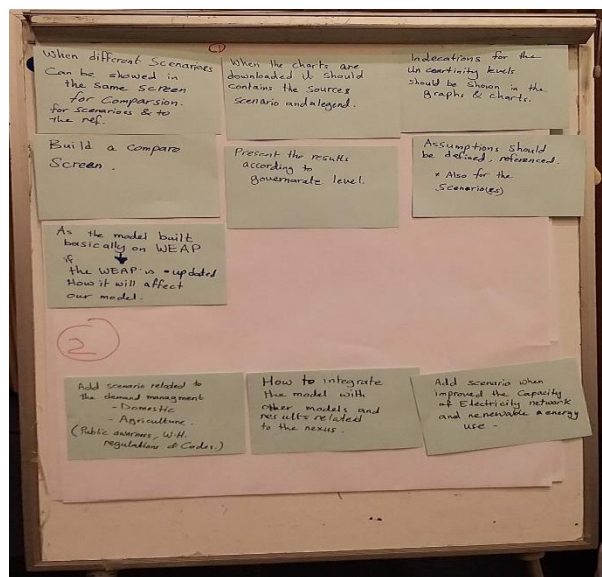 1
When different Scenarioes
Can be showed in
the same screen
for Comparsion.
for scenarioes & to
the ref.
When the charts are
downloaded it should
contains the Sources
Scenario and alegend.
Indecations for the
Un ceartinity levels
should be shown in the
graphs & charts.
Build a Compare
Screen.
Present the results
according to
governarate level.
Assumptions should
be defined, referenced.
* Also for the
Scenario(es)
As the model built
basically on WEAP
if
the WEAP is updated
How it will affect
our model.
2
Add scenario related to
the demand managment
- Domestic
- Agriculture.
(Public awarness, W.H.
regulations & Codes.)
How to integrate
the model with
other models and
results related
to the nexus.
Add scenario when
improved the Capacity
of Electricity network
and renewable energy
use -